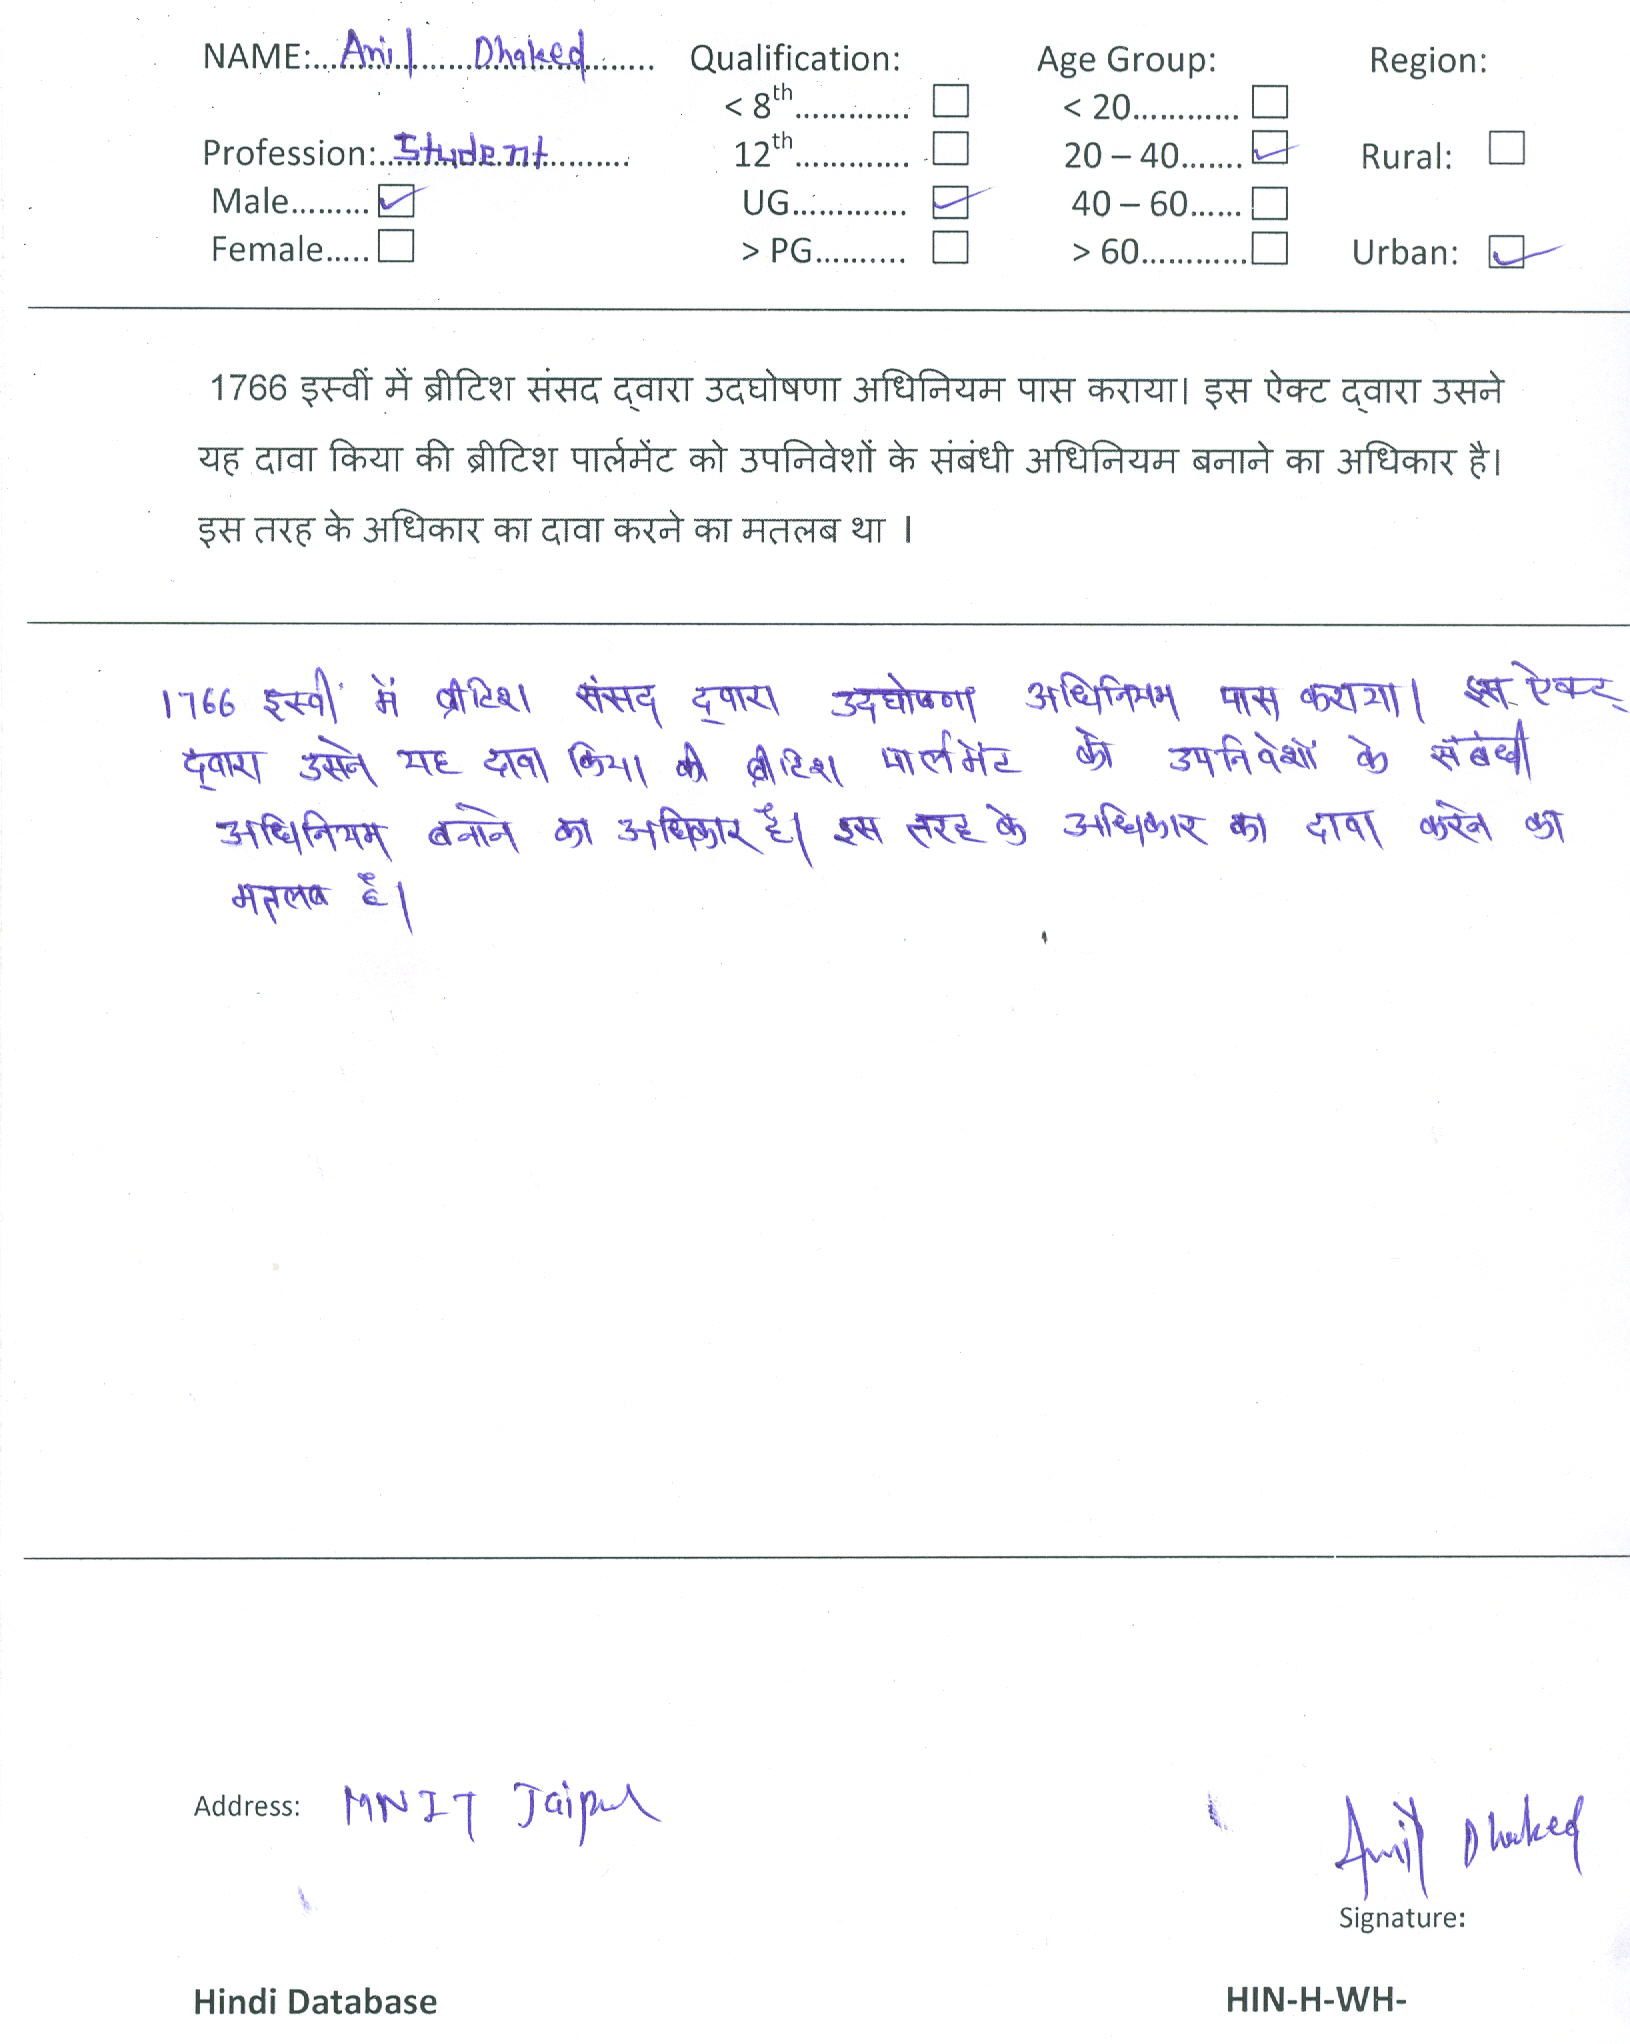 NAME:...Anil......Dhaked......... Qualification: Age Group: Region:
< 8th............. < 20............
Profession:..Student.......... 12th............. 20 – 40....... Rural:
Male......... UG............. 40 – 60......
Female..... > PG.......... > 60............ Urban:
1766 इस्वीं में ब्रीटिश संसद द्वारा उदघोषणा अधिनियम पास कराया। इस ऐक्ट द्वारा उसने
यह दावा किया की ब्रीटिश पार्लमेंट को उपनिवेशों के संबंधी अधिनियम बनाने का अधिकार है।
इस तरह के अधिकार का दावा करने का मतलब था ।
1766 इस्वीं में ब्रीटिश संसद द्वारा उदघोषणा अधिनियम पास कराया। इस ऐक्ट
द्वारा उसने यह दावा किया की ब्रीटिश पार्लमेंट को उपनिवेशों के संबंधी
अधिनियम बनाने का अधिकार है। इस तरह के अधिकार का दावा करेन का
मतलब है।
Address: MNIT Jaipur
Anil Dhaked
Signature:
Hindi Database HIN-H-WH-